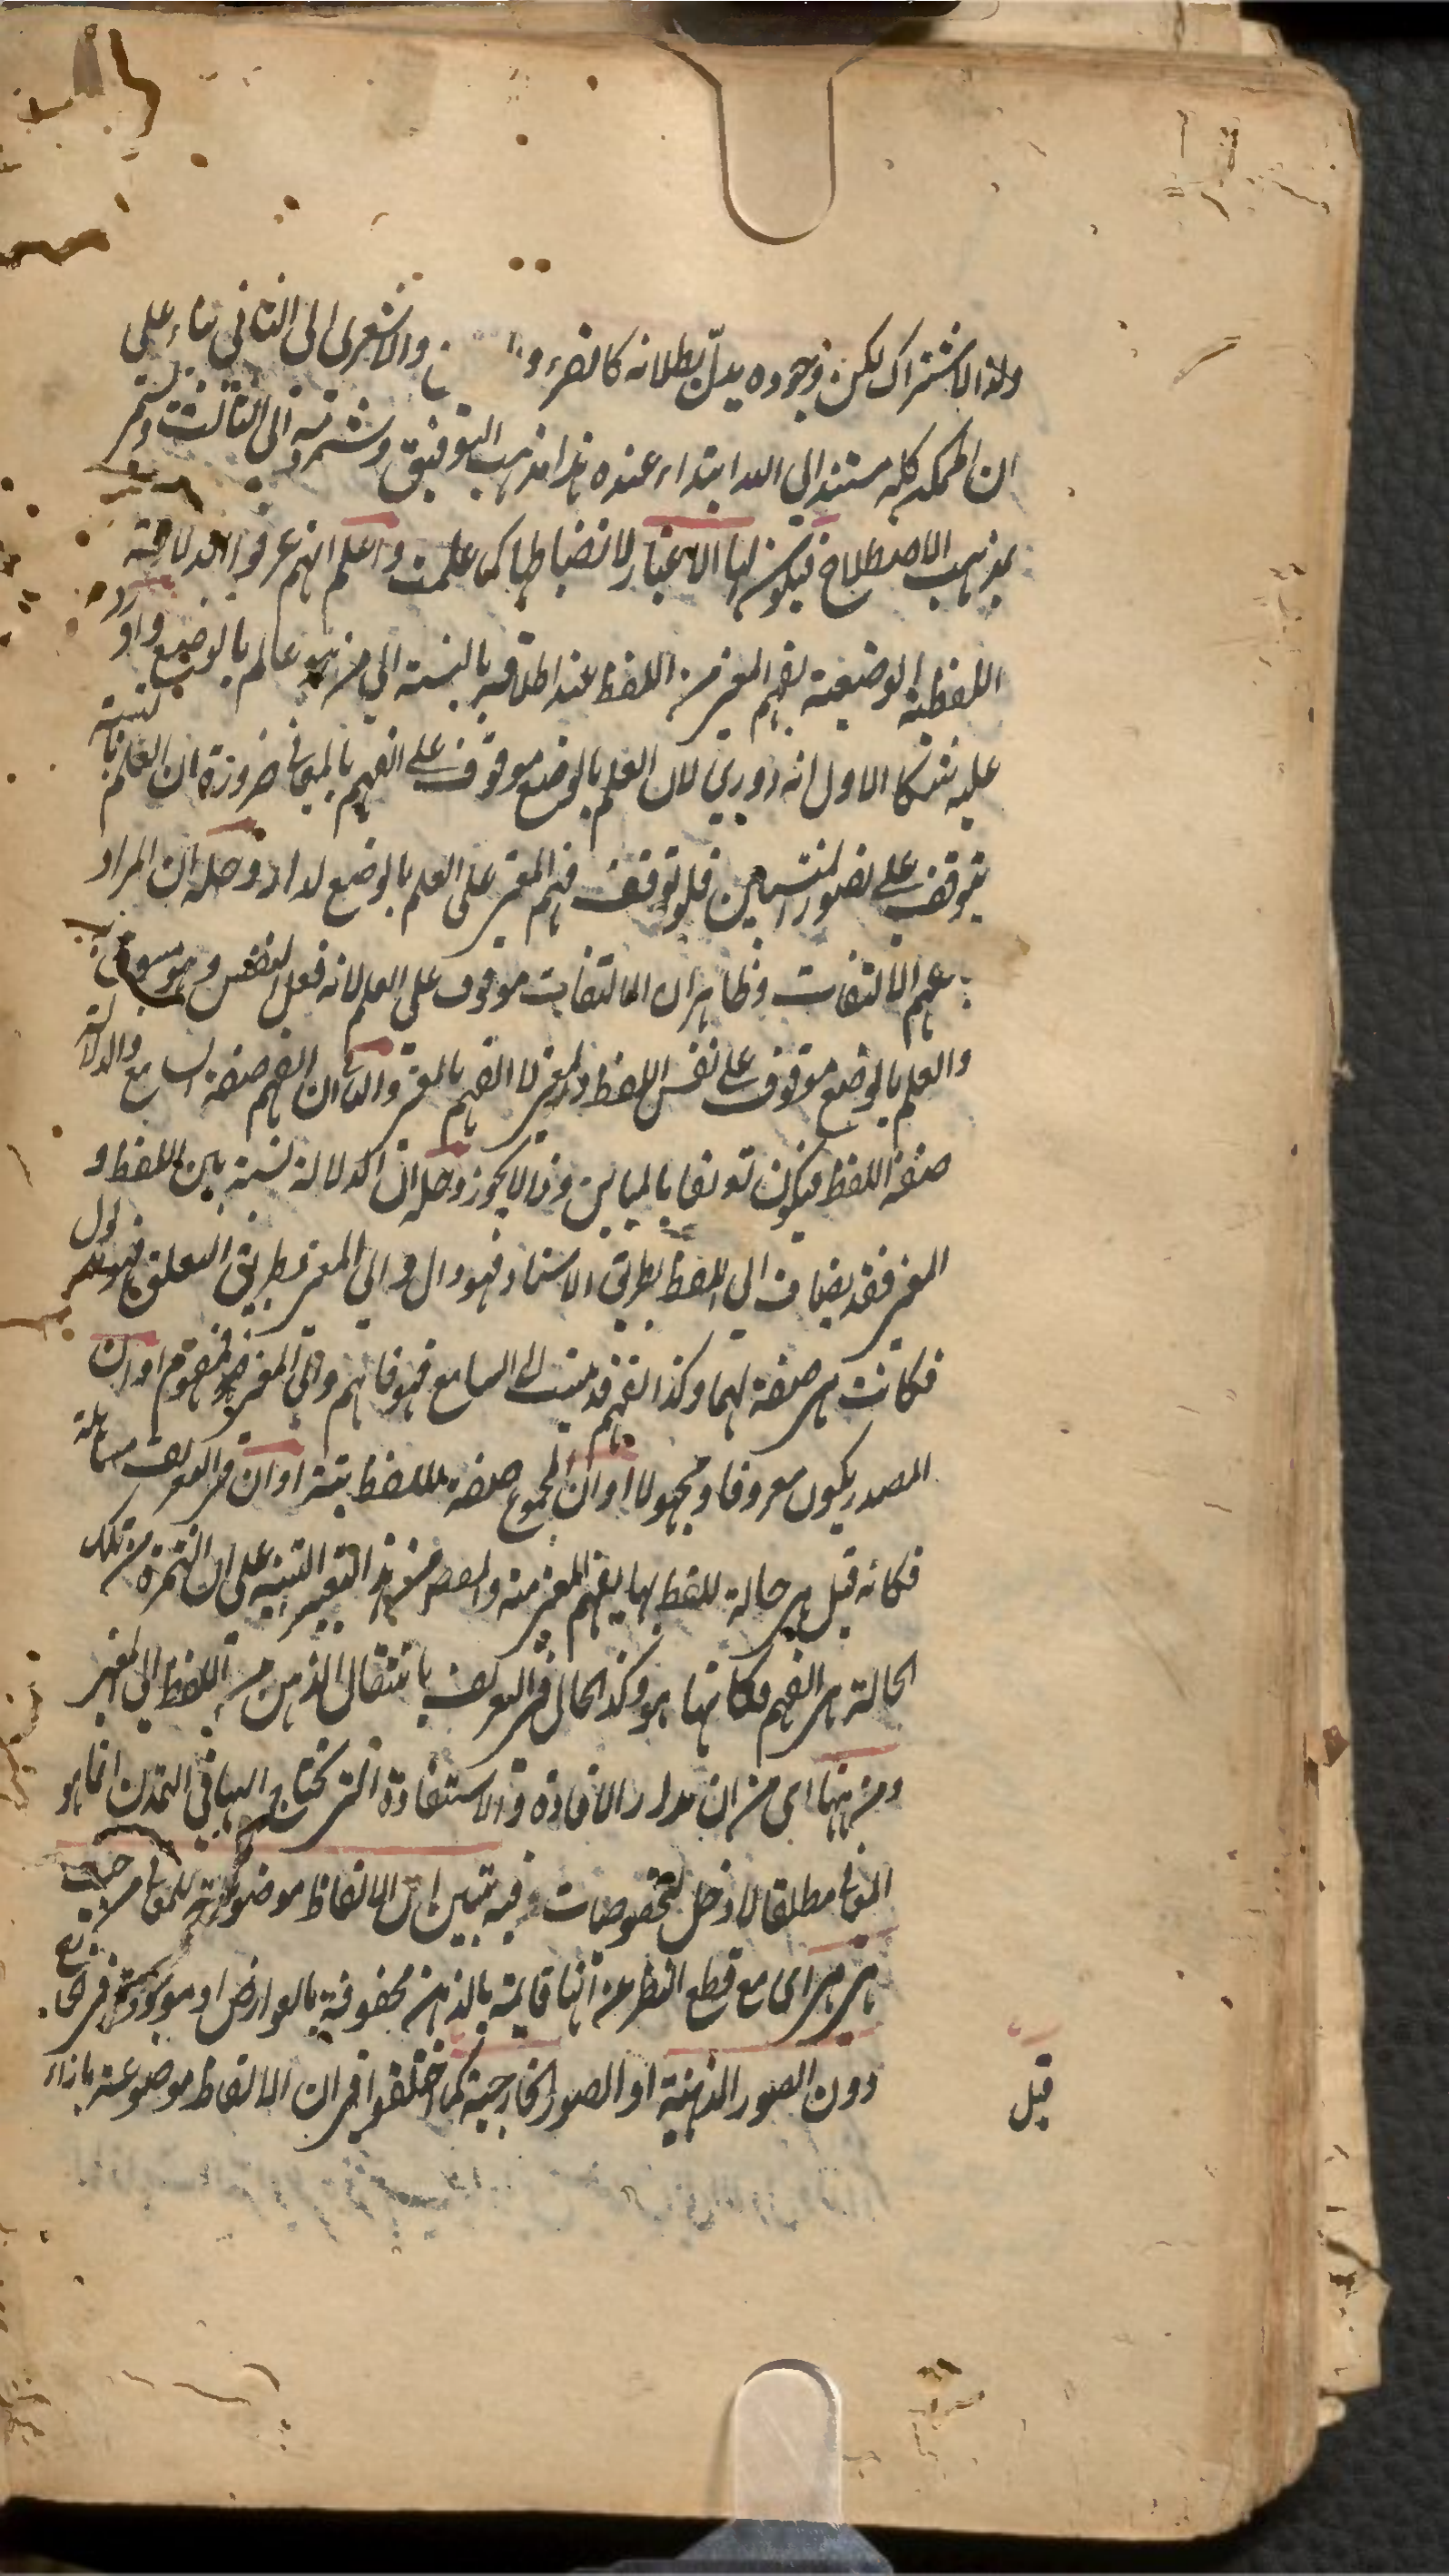 ولذا الاشتراك لكن وجوده يدل بطلانه كالقرء و والاشعرى الى الثانى بناء على
ان الممكن كله مستند الى الله ابتداء عنده هذا مذهب التوفيق وشرذمة الى الثالث
بمذهب الاصطلاح فيكون لها الاعتبار لانضباطها كما علمت واعلم انهم عرفوا الدلالة
اللفظية الوضعية بفهم المعنى من اللفظ عند اطلاقه بالنسبة الى من هو عالم بالوضع واورد
عليه شكا الاول انه دورى لان العلم بالوضع موقوف على الفهم بالمعانى ضرورة ان العلم بالنسبة
يتوقف على تصور المنتسبين فلو توقف فهم المعنى على العلم بالوضع لدار وحله ان المراد
بفهم الالتفات وظاهر ان الالتفات موقوف على العلم لانه فعل النفس وهو مسبوق به
والعلم بالوضع موقوف على نفس اللفظ والمعنى لا الفهم بالمعنى والثانى ان الفهم صفة السامع والدلالة
صفة اللفظ فيكون تعريفا بالمباين وذا لا يجوز وحله ان الدلالة نسبة بين اللفظ و
المعنى فقد يضاف الى اللفظ بطريق الاسناد فهو دال والى المعنى بطريق التعلق فهو مدلول
فكانت هى صفة لهما وكذا الفهم قد ينسب الى السامع فهو فاهم والى المعنى فهو مفهوم او ان
المصدر يكون معروفا ومجهولا او ان المجموع صفة للفظ بتة او ان فى التعريف مساهلة
فكانه قيل هى حالة للفظ بها يفهم المعنى منه والغرض من هذا التعبير التنبيه على ان الثمرة من تلك
الحالة هى الفهم فكانها هو وكذا الحال فى التعريف بانتقال الذهن من اللفظ الى المعنى
ومن ههنا اى من ان مدار الافادة والاستفادة التى تحتاج اليها فى التمدن انما هو
المعانى مطلقا لا دخل لخصوصيات فيه تبين ان الالفاظ موضوعة للمعانى من حيث
هى هى اى مع قطع النظر عن انها قايمة بالذهن محفوفة بالعوارض او موجودة فى الخارج
دون الصور الذهنية او الصور الخارجية كما اختلفوا فى ان الالفاظ موضوعة بازاء
قيل